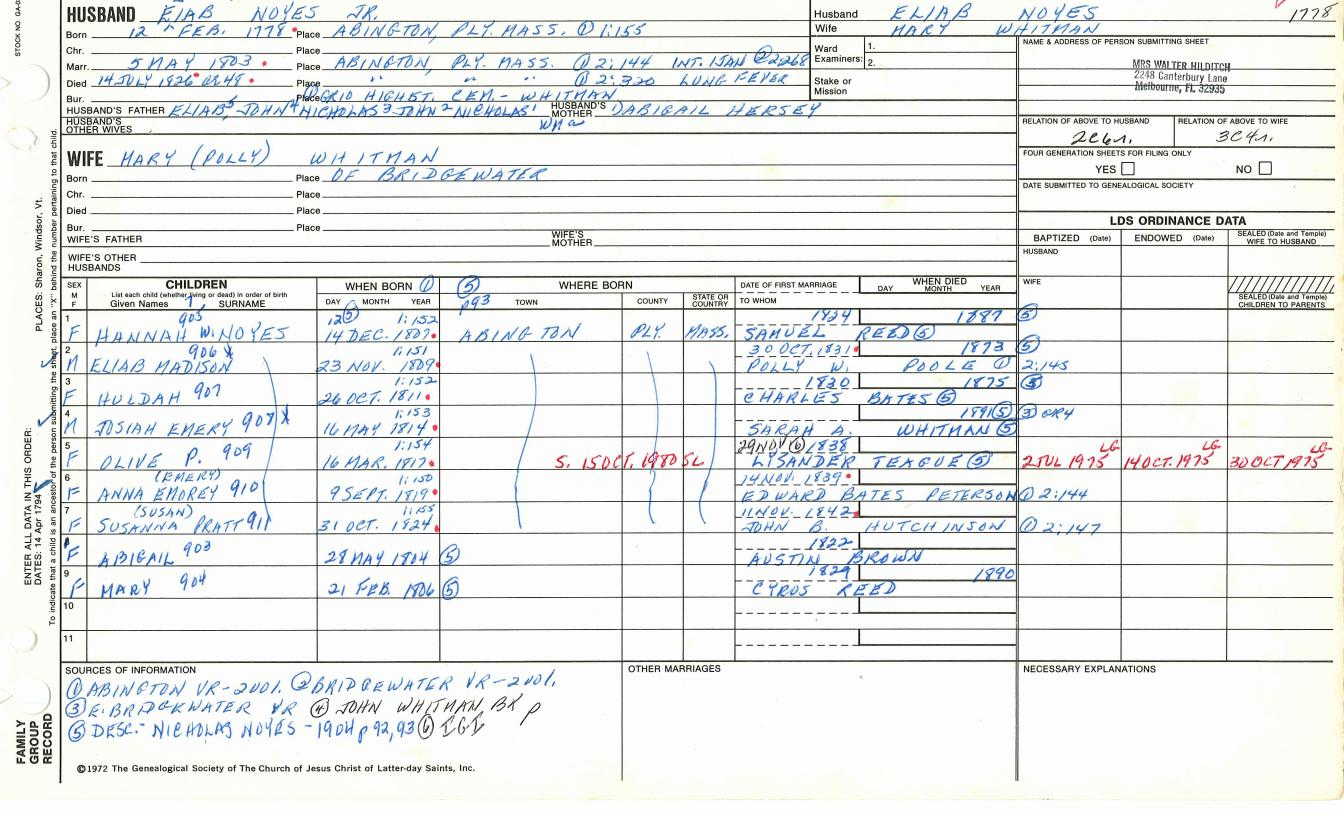 HUSBAND ELIAB NOYES JR.
Born 12 FEB. 1778 Place ABINGTON, PLY. MASS. ① 1:155
Chr. Place
Marr. 5 MAY 1803 Place ABINGTON, PLY. MASS. ① 2:144 INT. 1JAN ② 2:268
Died 14 JULY 1826 OR 48 Place " " " ① 2:320 LUNG FEVER
Bur. Place HIGHST. CEM. - WHITMAN
HUSBAND'S FATHER ELIAB5, JOHN4 NICHOLAS3 JOHN2 NICHOLAS1 HUSBAND'S MOTHER ABIGAIL HERSEY
HUSBAND'S OTHER WIVES
WIFE MARY (POLLY) WHITMAN
Born Place OF BRIDGEWATER
Chr. Place
Died Place
Bur. Place
WIFE'S FATHER WIFE'S MOTHER
WIFE'S OTHER HUSBANDS
Husband ELIAB NOYES 1778
Wife MARY WHITMAN
Ward Examiners: 1.
2.
Stake or Mission
NAME & ADDRESS OF PERSON SUBMITTING SHEET
MRS WALTER HILDITCH
2248 Canterbury Lane
Melbourne, FL 32935
RELATION OF ABOVE TO HUSBAND RELATION OF ABOVE TO WIFE
2C6r. 3C4r.
FOUR GENERATION SHEETS FOR FILING ONLY
YES NO
DATE SUBMITTED TO GENEALOGICAL SOCIETY
LDS ORDINANCE DATA
BAPTIZED (Date) ENDOWED (Date) SEALED (Date and Temple) WIFE TO HUSBAND
HUSBAND
WIFE
SEALED (Date and Temple) CHILDREN TO PARENTS
SEX M F CHILDREN
List each child (whether living or dead) in order of birth
Given Names SURNAME
WHEN BORN ① DAY MONTH YEAR
⑤ p93 WHERE BORN TOWN COUNTY STATE OR COUNTRY
DATE OF FIRST MARRIAGE TO WHOM
WHEN DIED DAY MONTH YEAR
1 905 12⑤ 1:152 1824 1887 ⑤
F HANNAH W. NOYES 14 DEC. 1807 ABINGTON PLY. MASS. SAMUEL REED ⑤
2 906 X 1:151 30 OCT. 1831 1873 ⑤
M ELIAB MADISON 23 NOV. 1809 POLLY W. POOLE ① 2:145
3 1:152 1830 1875 ⑤
F HULDAH 907 26 OCT. 1811 CHARLES BATES ⑤
4 1:153 1891 ⑤ ③ OR 4
M JOSIAH EMERY 908 X 16 MAY 1814 SARAH A. WHITMAN ⑤
5 1:154 29 NOV ⑥ 1838 LG LG LG
F OLIVE P. 909 16 MAR. 1817 S. 15 OCT. 1980 SL LYSANDER TEAGUE ⑤ 2 JUL 1975 14 OCT. 1975 30 OCT 1975
6 (EMERY) 1:150 14 NOV. 1839
F ANNA EMOREY 910 9 SEPT. 1819 EDWARD BATES PETERSON ① 2:144
7 (SUSAN) 1:155 11 NOV. 1842
F SUSANNA PRATT 911 31 OCT. 1824 JOHN B. HUTCHINSON ① 2:147
1822
F ABIGAIL 903 28 MAY 1804 ⑤ AUSTIN BROWN
9 1829 1890
F MARY 904 21 FEB. 1806 ⑤ CYRUS REED
10
11
SOURCES OF INFORMATION
① ABINGTON VR-2VOL. ② BRIDGEWATER VR-2VOL.
③ E. BRIDGEWATER VR ④ JOHN WHITMAN BK p
⑤ DESC. NICHOLAS NOYES - 1904 p 92, 93 ⑥ IGI
OTHER MARRIAGES
NECESSARY EXPLANATIONS
©1972 The Genealogical Society of The Church of Jesus Christ of Latter-day Saints, Inc.
PLACES: Sharon, Windsor, Vt.
ENTER ALL DATA IN THIS ORDER:
DATES: 14 Apr 1794
To indicate that a child is an ancestor of the person submitting the sheet, place an "X" behind the number pertaining to that child.
FAMILY GROUP RECORD